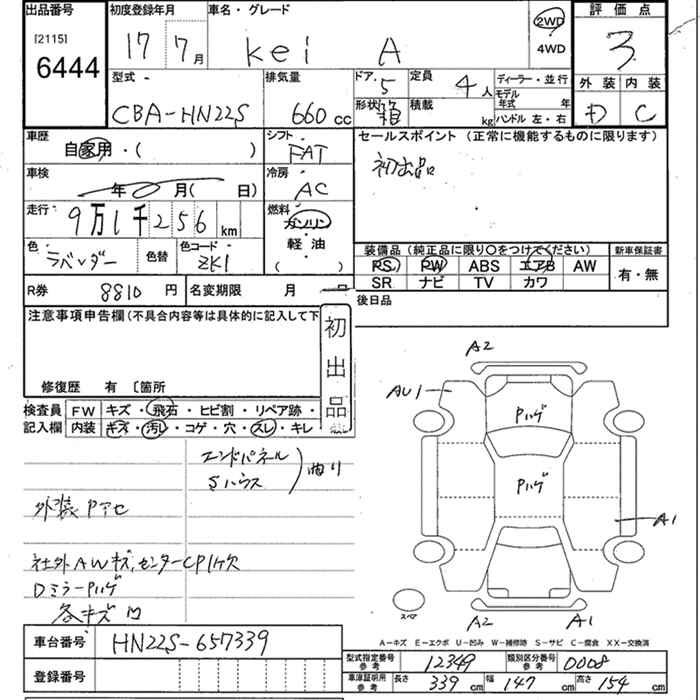 出品番号 初度登録年月 車名・グレード 2WD 評価点
[2115] 6444 17 7月 Kei A 4WD 3
型式 排気量 ドア 5 定員 4人 ディーラー・並行 外装 内装
CBA-HN22S 660cc 形状 箱 積載 kg モデル年式 年 ハンドル 左・右 D C
車歴 シフト セールスポイント(正常に機能するものに限ります)
自家用・( ) FAT 初出品
車検 年 0月( 日) 冷房 AC
走行 9万1千256km 燃料 ガソリン
軽油
( )
色 ラベンダー 色替 色コード ZK1
装備品(純正品に限り○をつけてください) 新車保証書
PS PW ABS エアB AW 有・無
SR ナビ TV カワ
R券 8810円 名変期限 月
後日品
注意事項申告欄(不具合内容等は具体的に記入して下
初出品
修復歴 有 〔箇所
検査員 FW キズ・飛石・ヒビ割・リペア跡・
記入欄 内装 キズ・汚レ・コゲ・穴・スレ・キレ
エンドパネル
Sハウス
曲り
外装 Pアセ
社外AWキズ、センターCP1ケ欠
DミラーPハゲ
各キズ凹
A2
AU1
Pハゲ
Pハゲ
A1
スペア
A2 A1
A-キズ E-エクボ U-凹み W-補修跡 S-サビ C-腐食 XX-交換済
車台番号 HN22S-657339
登録番号
型式指定番号 参考 12349 類別区分番号 参考 0008
車庫証明用 参考 長さ 339cm 幅 147cm 高さ 154cm